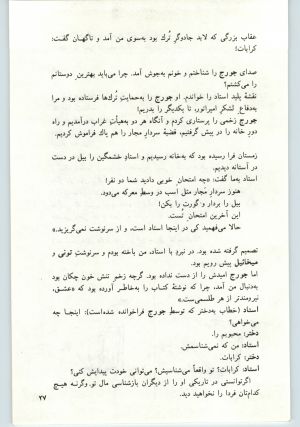 عقاب بزرگی که لابد جادوگر تُرك بود به‌سوی من آمد و ناگهان گفت:
کرابات؛
صدای جورج را شناختم و خونم به‌جوش آمد. چرا می‌باید بهترین دوستانم
را می‌کشتم؟
نقشهٔ پلید استاد را خواندم. او جورج را به‌حمایتِ تُرك‌ها فرستاده بود و مرا
به‌دفاع لشکرِ امپراتور، تا یکدیگر را بدریم.
جورج زخمی را پرستاری کردم و آنگاه هر دو به‌هیأتِ غراب درآمدیم و راه
دورِ خانه را در پیش گرفتیم. قضیهٔ سردارِ مجار را هم پاك فراموش کردیم.
زمستان فرا رسیده بود که به‌خانه رسیدیم و استادِ خشمگین را بیل در دست
در آستانه دیدیم.
استاد به‌ما گفت: «چه امتحان خوبی دادید شما دو نفر!
هنوز سردارِ مجار مثل اسب در وسطِ معرکه می‌دود.
بیل را بردار و گورت را بکن!
این آخرین امتحانِ تُست.
حالا می‌فهمید کی در اینجا استاد است، او و سرنوشت نمی‌گریزید.»
تصمیم گرفته شده بود. در نبرد با استاد، من باخته بودم و سرنوشتِ تونی و
میخائیل پیش رویم بود.
اما جورج امیدش را از دست نداده بود. گرچه زخم تنش خون چکان بود
به‌دنبال من آمد، چرا که نوشتهٔ کتاب را به‌خاطر آورده بود که «عشق،
نیرومندتر از هر طلسمی‌ست.»
استاد (خطاب به‌دختر که توسطِ جورج فراخوانده شده‌است): اینجا چه
می‌خواهی؟
دختر: محبوبم را.
استاد: من که نمی‌شناسمش.
دختر: کرابات.
استاد: کرابات؟ تو واقعاً می‌شناسیش؟ می‌توانی خودت پیدایش کنی؟
اگرتوانستی در تاریکی او را از دیگران بازشناسی مالِ تو. وگرنه هیچ
کدام‌تان فردا را نخواهید دید.
۲۷